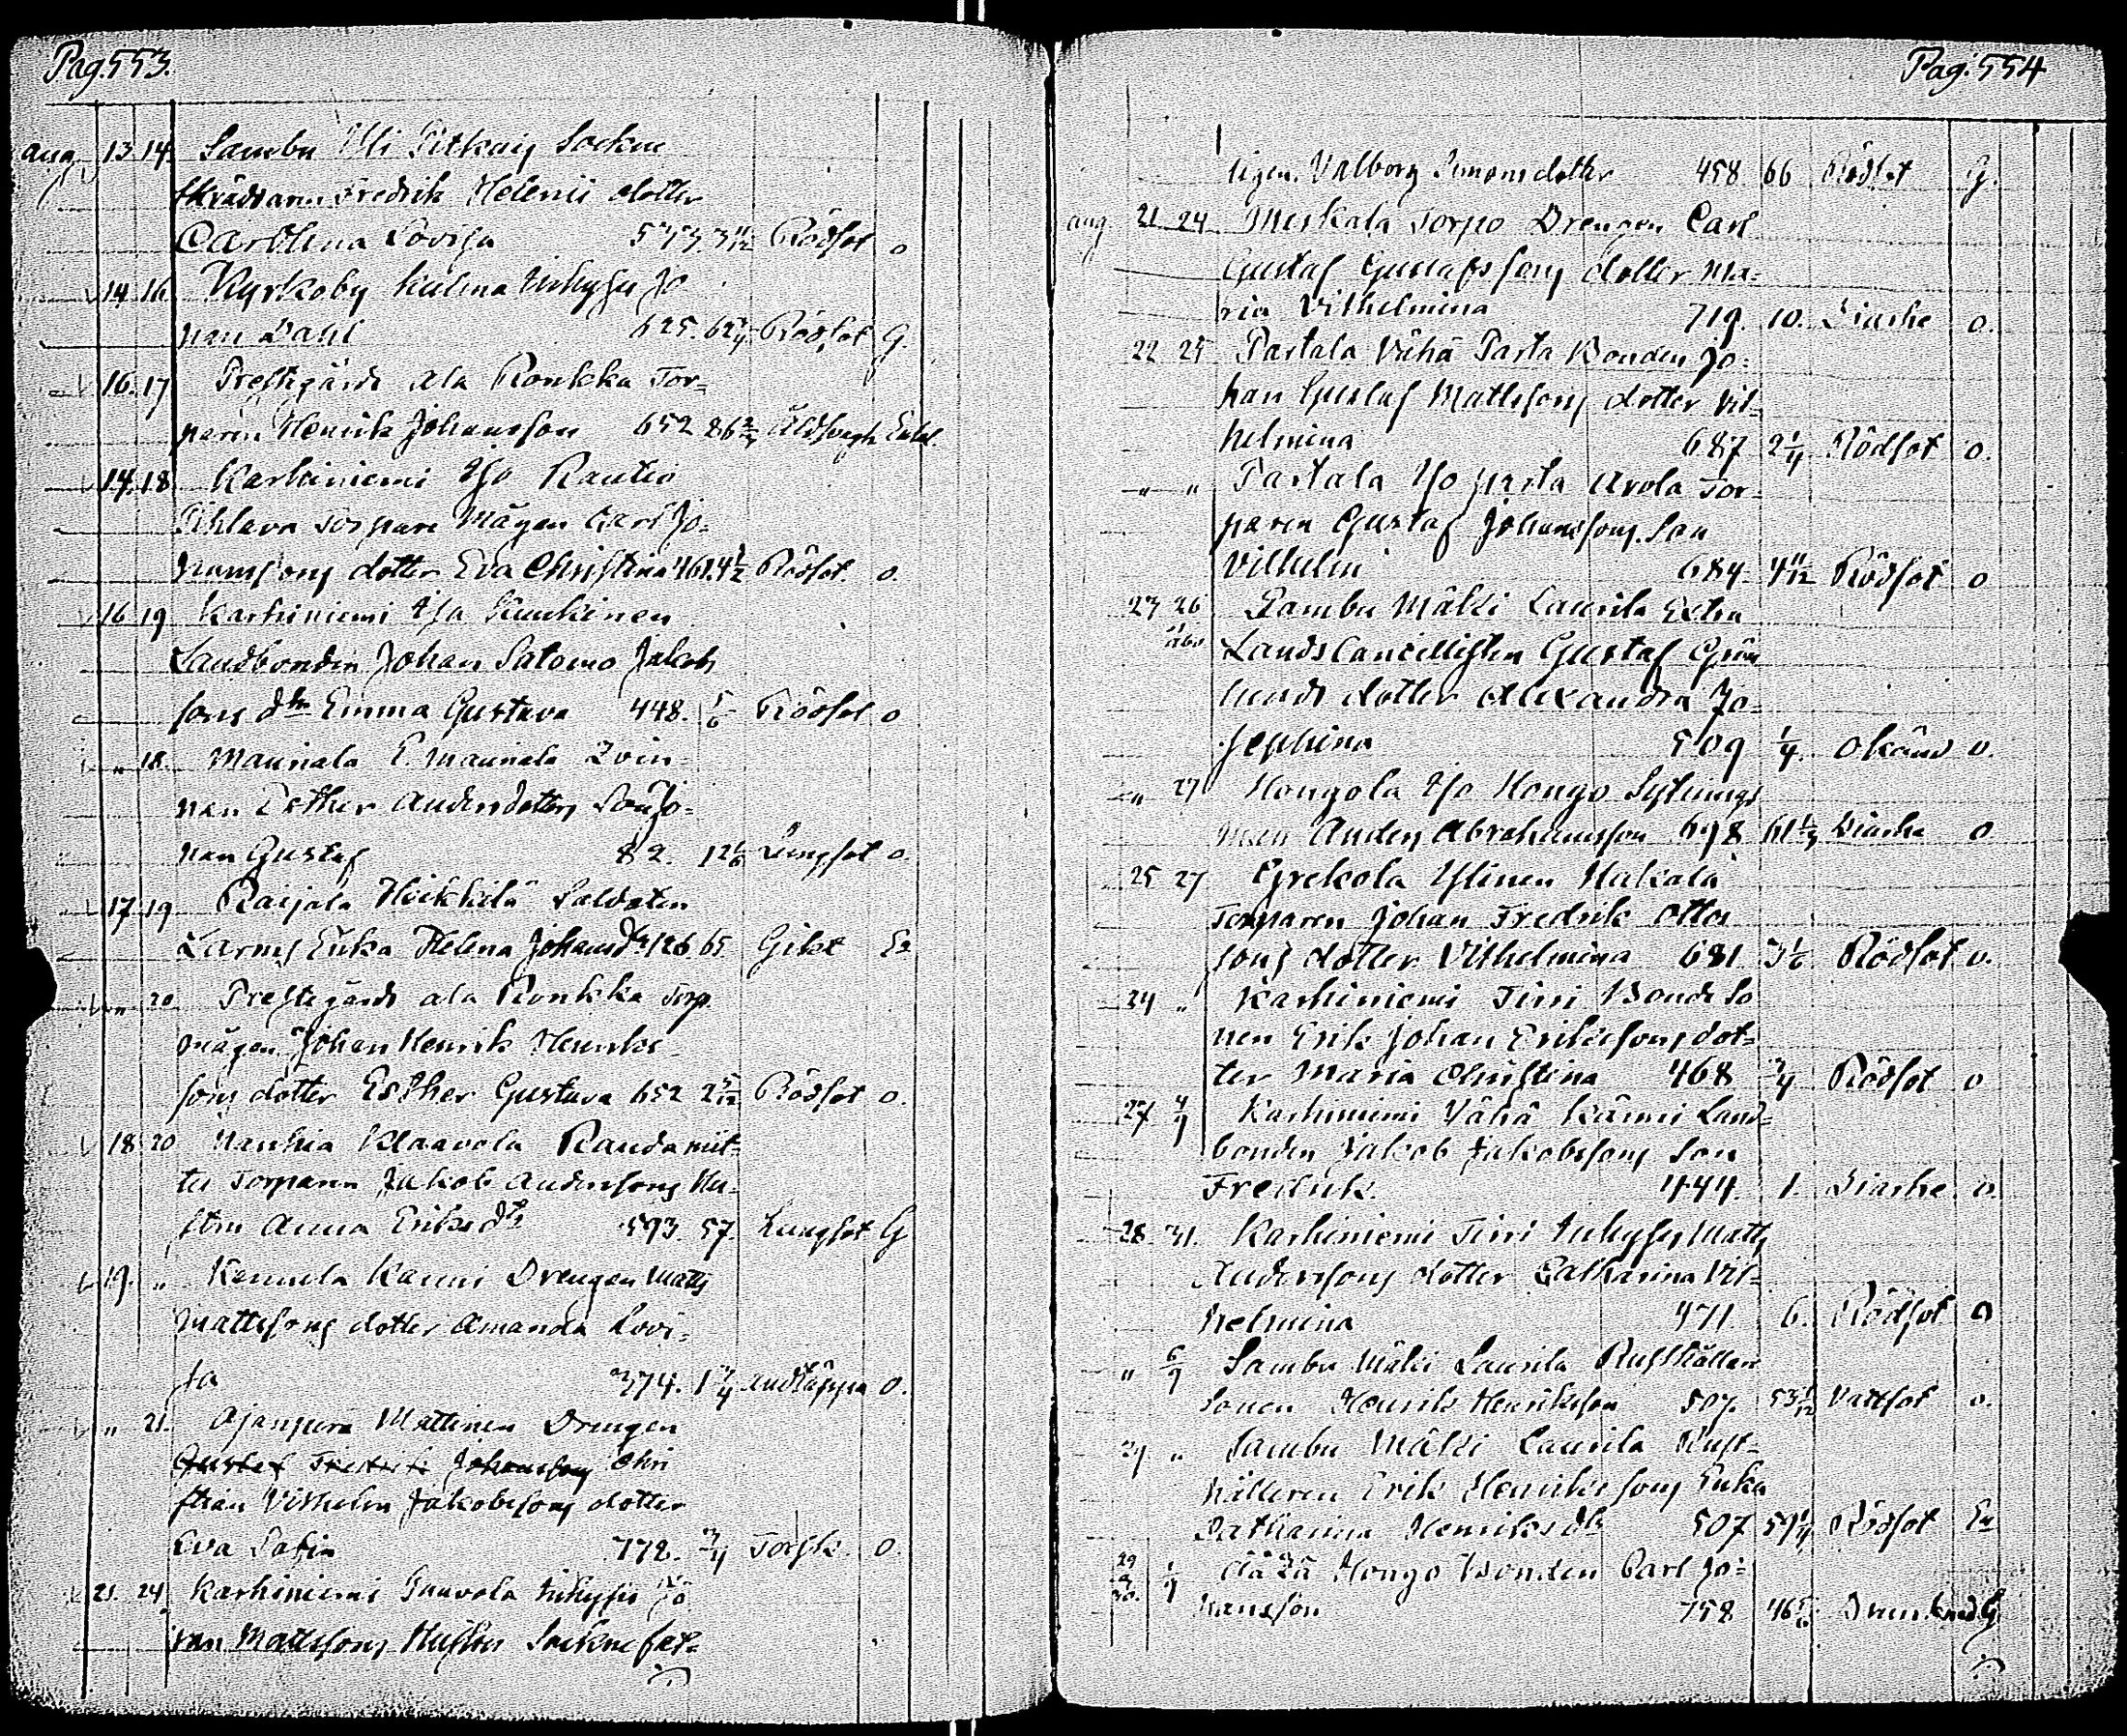 Pag. 553.
aug. 13 14 Sambu Yli Pitkäig Sockne
skräddaren Fredrik Helenii dotter
Carolina Lovisa 573. 3 11/12 Rödsot o
14 16 Kyrkoby Inhyses Jo
han Dahl 625. 62 3/4 Rödsot G.
16 17 Prestgårds ala Ronkka Tor=
paren Henrik Johansson 652 86 Enkl.
14 18 Karhiniemi Yso Rautio
Torpare Mågen Carl Jo=
hanssons dotter Eva Christina 461. 4 1/2 Rödsot. o.
16 19 Karhiniemi Iso
Landbonden Johan Salomo Jakobs
sons dtr Emma Gustava 448. 5/6 Rödsot o
" 18. Mauriala E. Mauriala Qvin=
nan Esther Andersdotters Son Jo=
han Gustaf 82. 12 1/6 Lungsot o.
17 19 Raijala Heikkilä Soldaten
Larms Enka Helena Johansdr 126. 65 Gikt E
" 20 Prestegårds ala Ronkka Torp.
mågen Johan Henrik Henriks=
sons dotter Esther Gustava 652 2 5/12 Rödsot o.
18 20 Hanhia Klaavola Raudanut=
tu Torparen Jakob Anderssons Hu=
stru Anna Eriksdr 593. 57. Lungsot G
19. " Kennola Kanni Drengen Matts
Mattssons dotter Amanda Lovi=
sa 374. 1 3/4 andtäppa o.
" 21. Ajanperä Mattinen Drengen
Gustaf Fredrik Johanssons Chri
stian Vilhelm Jakobssons dotter
Eva Sofia 772. 3/4 Torsk. o.
21. 24 Karhiniemi Juuvola Inhyses Jo
han Mattssons Hustru Sockne fat=
Pag. 554
tigen. Valborg Simonsdotter 458. 66 Rödsot G.
aug. 21 24 Meskala Torpo Drengen Carl
Gustaf Gustafssons dotter Ma=
ria Vilhelmina 719. 10. Diarhe o.
22 25 Partala Vähä Parta Bonden Jo=
han Gustaf Mattssons dotter Vil=
helmina 687 2 1/4 Rödsot o.
" " Partala Yso parta Arola Tor=
paren Gustaf Johanssons Son
Vilhelm 684. 4 11/12 Rödsot o
23 26 Sambu Mälki Laurila Extra
åbo Landscancellisten Gustaf Grön
lunds dotter Alexandra Jo=
sephina 509 1/4. Okänd o.
" 27 Hongola Yso Hongo Sytnings
man Anders Abrahamsson 698 61 1/3 Diarhe o.
25 27 Grekola Ylinen Hakala
Torparen Johan Fredrik Otto
sons dotter Vilhelmina 681 3 1/6 Rödsot o.
24 " Karhiniemi Tirri Bonde So
nen Erik Johan Erikssons dot=
ter Maria Christina 468 3/4 Rödsot o
27 4/9 Karhiniemi Vähä Kämmi Land=
bonden Jakob Jakobssons Son
Fredrik. 444. 1. Diarhe o.
28. 31. Karhiniemi Tirri Inhyses Matts
Anderssons dotter Catharina Vil=
helmina 471. 6. Rödsot o
" 6/9 Sambu Mälki Laurila Rusthållare
Sonen Henrik Henriksson 507. 53 1/12 Vattsot o.
29 " Sambu Mälki Laurila Rust=
hållaren Erik Henrikssons Enka
Catharina Henriksdr 507 59 1/4 Rödsot E
29 a 30. 1/9 Hongo Bonden Carl Jo=
hansson 758 46 Drunknad G